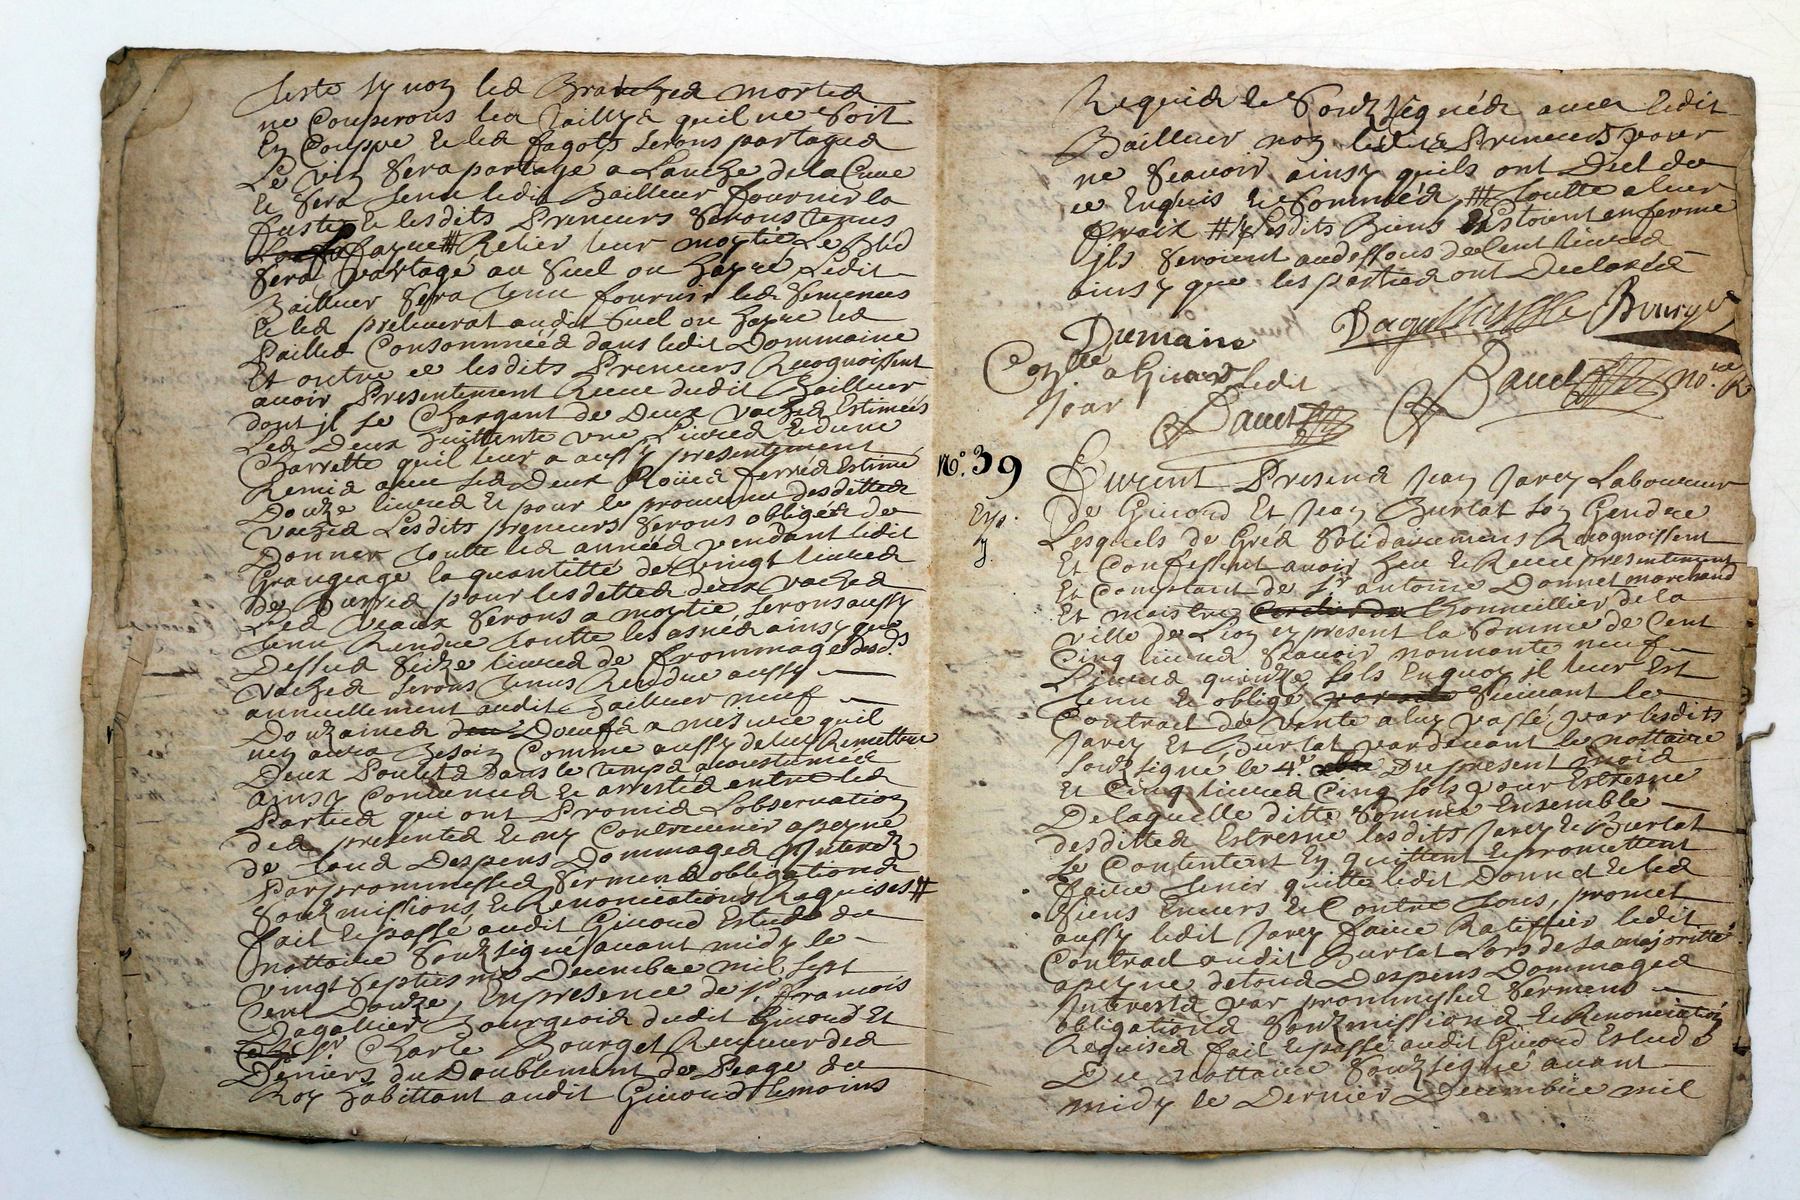 teste sy non les Branches mortes
ne Couperons les taillys quil ne Soit
En Couppe et les fagots serons partages
Le vin Sera partagé a Lanche de la Cuve
Et Sera tenu ledit Bailleur fournir la
fuste Et lesdits Preneurs Serons tenus
# Relier leur moytié Le Bled
Sera partagé au Suel ou ledit
Bailleur Sera tenu fournir les Semences
Et les preleverat audit Suel ou les
Pailles Consommées dans ledit Dommaine
Et outre ce lesdits Preneurs Recognoissent
avoir Presentement Receu dudit Bailleur
dont jl se Chargent de Deux vaches Estimées
Les Deux huittante une Livres Et dune
Charrette quil leur a aussy presentement
Remis avec ses Deux Roües ferrés Estimé
Douze livres Et pour le provenu desdittes
vaches Lesdits preneurs Serons obligés de
Donner toutte les années pendant ledit
Grangeage la quantitté de vingt livres
de Burre pour lesdittes deux vaches
Les veaux Serons a moytié Serons aussy
tenu Rendre toutte les année ainsy que
Dessus Seize livres de frommages desd.s
vaches Serons tenus Rendre aussy
annuellement audit Bailleur neuf
Douzaines Doeufs a mesure quil
nen aura Besoin Comme aussy de luy Remettre
Deux Poulets Dans le temps accoustumée
ainsy Convenus Et arrestés entre les
Parties qui ont Promis L'observation
des presentes Et ny Contrevenir apeyne
de tous Despens Dommages Jnterez
Par prommesses Serment obligations
Soubzmissions, Et Renonciations Requises #
fait Et passé audit Givord Estude du
nottaire Soubzsigné avant midy le
vingt Septiesme Decembre mil sept
Cent Douze, En presence de Sr. francois
Dagallier Bourgeois dudit Givord Et
Sr Charle Bourget Receveur des
Deniers du Doublement de Peage du
Roy habittant audit Givord temoins
Requis Et Soubzsignés avec ledit
Bailleur non lesdits Preneurs pour
ne Scavoir ainsy quils ont Dict de
ce Enquis Et Sommés # toutte a leur
fraix # Sy lesdits Biens Estoient en ferme
jls Seroient audessous de Cent livres
ainsy que les parties ont Declarés
Dumaine Bourget
Con.lle a Givord ledit
jour
Bauet Bauet no.re R
No. 39
Exp.
Furent Presens Jean Javey Laboureur
De Givord Et Jean Burlat Son Gendre
Lesquels de Grés Solidairement Recognoissent
Et Confessent avoir heu Et Receu presentement
Et Comptant de Sr antoine Donnet marchand
Et maistre Bonnettier de la
ville de Lion cy present la Somme de Cent
Cinq livres Scavoir nonnante neuf
Livres quinze Sols Enquoy jl leur Est
tenu Et obligé Suivant le
Contract de vente a luy passé par lesdits
Javey Et Burlat pardevant le nottaire
Soubzsigné le 4.e Du present mois
Et Cinq livres Cinq Sols pour Estresne
De laquelle ditte Somme Ensemble
desdittes Estresne lesdits Javey Et Burlat
Se Contentent En quittent Et promettent
Faire tenir quitte ledit Donnet Et les
Siens Envers Et Contre tous, promet
aussy ledit Javey faire Ratiffier ledit
Contract audit Burlat Lors de Sa majoritté
apeyne de tous Despens Dommages
Jnterests par prommesses Serment
obligations Soubzmissions Et Renonciations
Requises fait Et passé audit Givord Estude
Du nottaire Soubzsigné avant
midy le Dernier Decembre mil